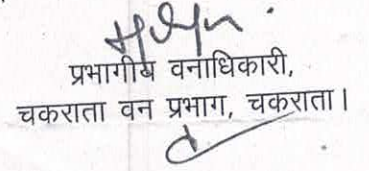 प्रभागीय वनाधिकारी,
चकराता वन प्रभाग, चकराता।